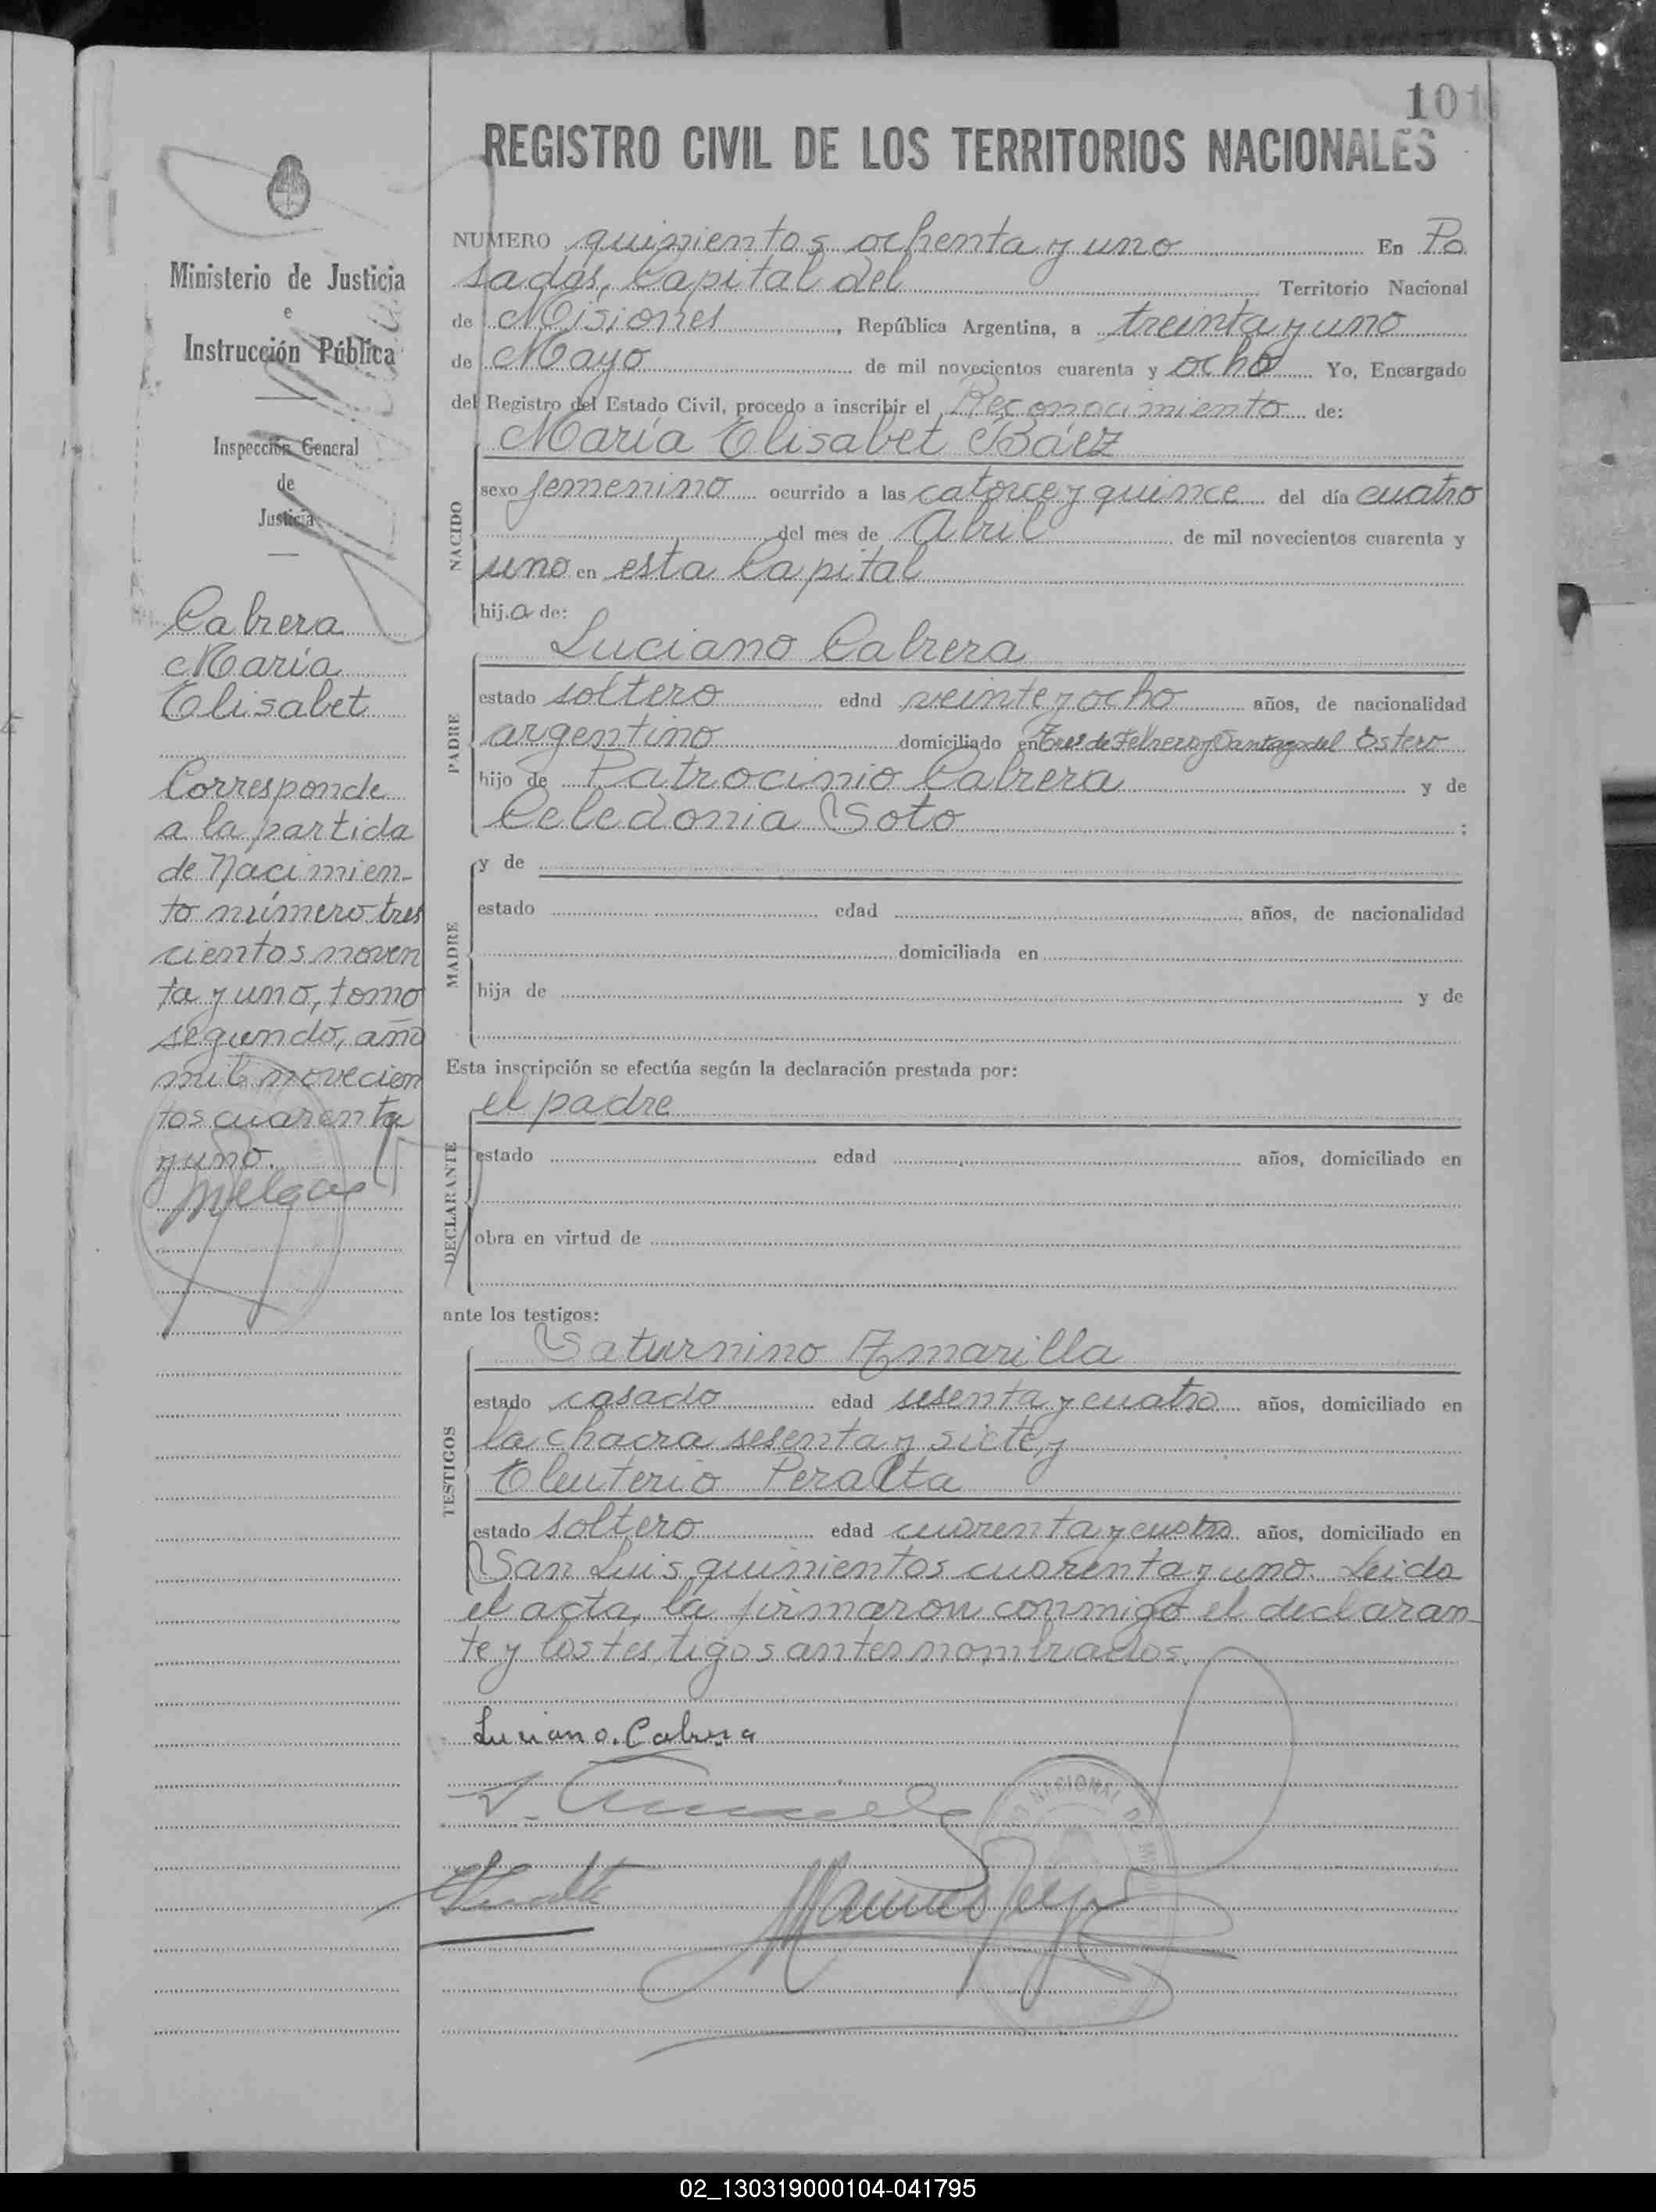 101
REGISTRO CIVIL DE LOS TERRITORIOS NACIONALES
Ministerio de Justicia
e
Instrucción Pública
Inspección General
de
Justicia
Cabrera
María
Elisabet
Corresponde
a la partida
de Nacimien-
to número tres
cientos noven
ta y uno, tomo
segundo, año
mil novecien
tos cuarenta
y uno.
NUMERO quinientos ochenta y uno En Po
sadas, Capital del Territorio Nacional
de Misiones, República Argentina, a treinta y uno
de Mayo de mil novecientos cuarenta y ocho Yo, Encargado
del Registro del Estado Civil, procedo a inscribir el Reconocimiento de:
María Elisabet Báez
NACIDO
sexo femenino ocurrido a las catorce y quince del día cuatro
del mes de Abril de mil novecientos cuarenta y
uno en esta Capital
hij.a de:
Luciano Cabrera
PADRE
estado soltero edad veinte y ocho años, de nacionalidad
argentino domiciliado en Tres de Febrero y Santiago del Estero
hijo de Patrocinio Cabrera y de
Celedonia Soto ;
MADRE
y de
estado edad años, de nacionalidad
domiciliada en
hija de y de
Esta inscripción se efectúa según la declaración prestada por:
el padre
DECLARANTE
estado edad años, domiciliado en
obra en virtud de
ante los testigos:
Saturnino Amarilla
TESTIGOS
estado casado edad sesenta y cuatro años, domiciliado en
la chacra sesenta y siete, y
Eleuterio Peralta
estado soltero edad cuarenta y cuatro años, domiciliado en
San Luis quinientos cuarenta y uno. Leida
el acta, la firmaron conmigo el declaran-
te y los testigos antes nombrados.
Luciano. Cabrera
NACIONAL DE
02_130319000104-041795